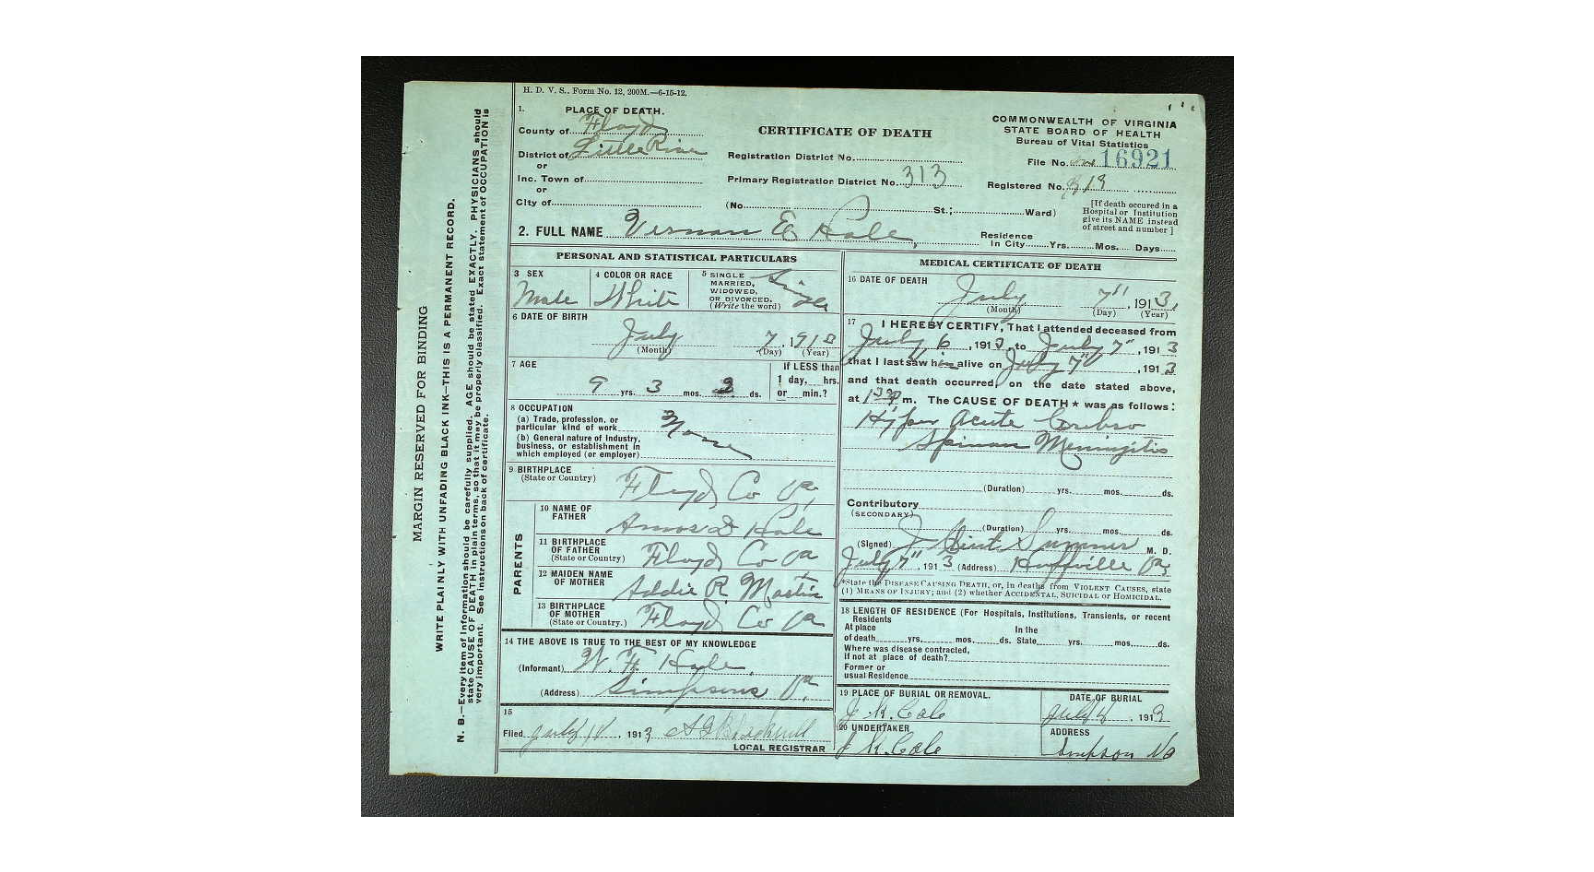 H. D. V. S., Form No. 12, 200M.—6-15-12.
1. PLACE OF DEATH.
County of Floyd
District of Little River
or
Inc. Town of
or
City of
CERTIFICATE OF DEATH
Registration District No.
Primary Registration District No. 313
(No St.; Ward)
COMMONWEALTH OF VIRGINIA
STATE BOARD OF HEALTH
Bureau of Vital Statistics
File No. 16921
Registered No.
[If death occured in a
Hospital or Institution
give its NAME instead
of street and number]
2. FULL NAME Vernan E Hale,
Residence
In City Yrs. Mos. Days
PERSONAL AND STATISTICAL PARTICULARS
3 SEX
Male
4 COLOR OR RACE
White
5 SINGLE
MARRIED,
WIDOWED,
OR DIVORCED.
(Write the word)
Single
6 DATE OF BIRTH
July 7, 191
(Month) (Day) (Year)
7 AGE
9 yrs. 3 mos. ds.
If LESS than
1 day, hrs.
or min.?
8 OCCUPATION
(a) Trade, profession, or
particular kind of work
None
(b) General nature of Industry,
business, or establishment in
which employed (or employer)
9 BIRTHPLACE
(State or Country)
Floyd Co Va,
PARENTS
10 NAME OF
FATHER
Amos D Hale
11 BIRTHPLACE
OF FATHER
(State or Country)
Floyd Co Va
12 MAIDEN NAME
OF MOTHER
Addie R. Mastin
13 BIRTHPLACE
OF MOTHER
(State or Country.)
Floyd Co Va
14 THE ABOVE IS TRUE TO THE BEST OF MY KNOWLEDGE
(Informant) W. F. Hyle,
(Address) Simpsons Va
15
Filed July 1913
LOCAL REGISTRAR
MEDICAL CERTIFICATE OF DEATH
16 DATE OF DEATH
July 7", 1913,
(Month) (Day) (Year)
17 I HEREBY CERTIFY, That I attended deceased from
July 6, 1913, to July 7", 1913
that I last saw him alive on July 7", 1913
and that death occurred, on the date stated above,
at m. The CAUSE OF DEATH ★ was as follows:
Hyper Acute Cerebro
Spinan Meningitis
(Duration) yrs. mos. ds.
Contributory
(SECONDARY)
(Duration) yrs. mos. ds.
(Signed) J Sumner M. D.
July 7", 1913 (Address) Huffville Va,
*State the DISEASE CAUSING DEATH, or, in deaths from VIOLENT CAUSES, state
(1) MEANS OF INJURY; and (2) whether ACCIDENTAL, SUICIDAL or HOMICIDAL.
18 LENGTH OF RESIDENCE (For Hospitals, Institutions, Transients, or recent
Residents
At place In the
of death yrs. mos. ds. State yrs. mos. ds.
Where was disease contracted,
If not at place of death?
Former or
usual Residence
19 PLACE OF BURIAL OR REMOVAL.
J. K. Cole
DATE OF BURIAL
July, 191
20 UNDERTAKER
J K. Cole
ADDRESS
Simpson Va
MARGIN RESERVED FOR BINDING
WRITE PLAINLY WITH UNFADING BLACK INK—THIS IS A PERMANENT RECORD.
N. B.—Every item of Information should be carefully supplied. AGE should be stated EXACTLY. PHYSICIANS should
state CAUSE OF DEATH in plain terms, so that it may be properly classified. Exact statement of OCCUPATION is
very important. See instructions on back of certificate.